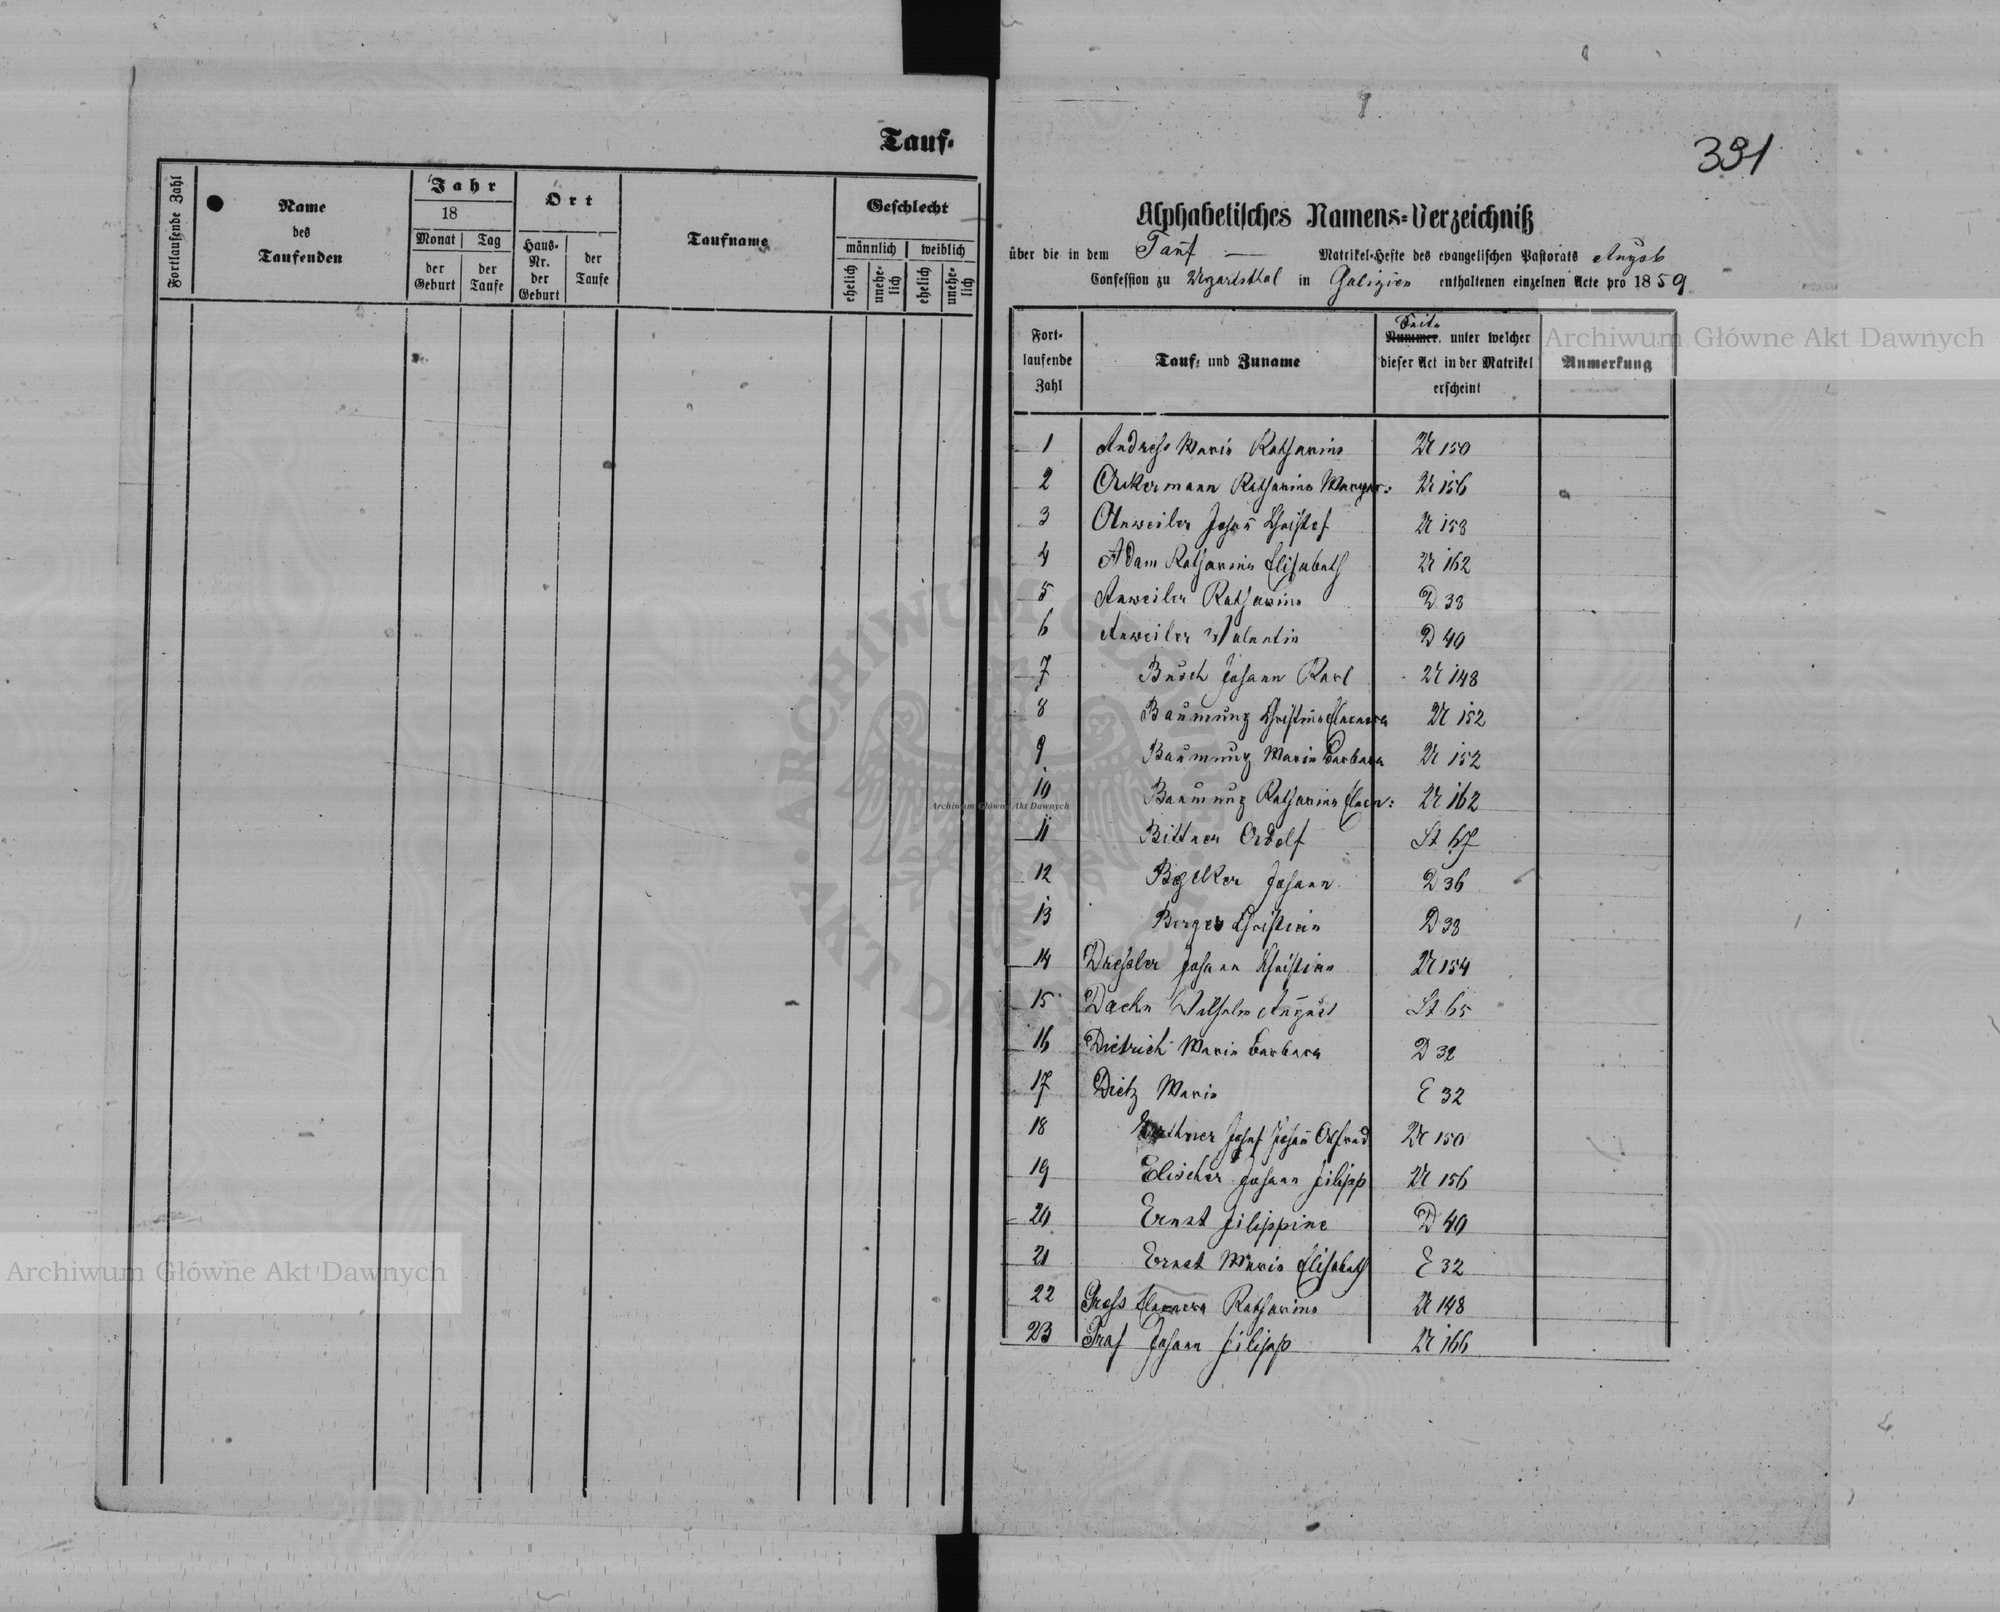 Tauf-
Fortlaufende Zahl
Name
des
Taufenden
Jahr
18
Monat
Tag
der
Geburt
der
Taufe
Ort
Haus-
Nr.
der
Geburt
der
Taufe
Taufname
Geschlecht
männlich
weiblich
ehelich
unehe-
lich
ehelich
unehe-
lich
391
Alphabetisches Namens-Verzeichniß
über die in dem Tauf — Matrikel-Hefte des evangelischen Pastorats Augsb
Confession zu Ugartsthal in Galizien enthaltenen einzelnen Acte pro 1859
Fort-
laufende
Zahl
Tauf- und Zuname
Seite
Nummer, unter welcher
dieser Act in der Matrikel
erscheint
Anmerkung
1 Andress Maria Katharina U 150
2 Ackermann Katharina Margar: U 156
3 Anweiler Johañ Christof U 158
4 Adam Katharina Elisabeth U 162
5 Anweiler Katharina D 38
6 Anweiler Valentin D 40
7 Busch Johann Karl U 148
8 Baumung Christina Eleonora U 152
9 Baumung Maria Barbara U 152
10 Baumung Katharina Eleon: U 162
11 Bittner Adolf St 67
12 Johann D 36
13 Berger Christian D 38
14 Dressler Johann Christian U 154
15 Dachn Wilhelm August St 65
16 Dietrich Maria Barbara D 32
17 Dietz Maria E 32
18 Josef Johañ Alfred U 150
19 Elischer Johann Filipp U 156
20 Ernst Filippine D 40
21 Ernst Maria Elisabeth E 32
22 Gress Eleonora Katharina U 148
23 Graf Johann Filipp U 166
Archiwum Główne Akt Dawnych
Archiwum Główne Akt Dawnych
Archiwum Główne Akt Dawnych
ARCHIWUM GŁÓWNE AKT DAWNYCH